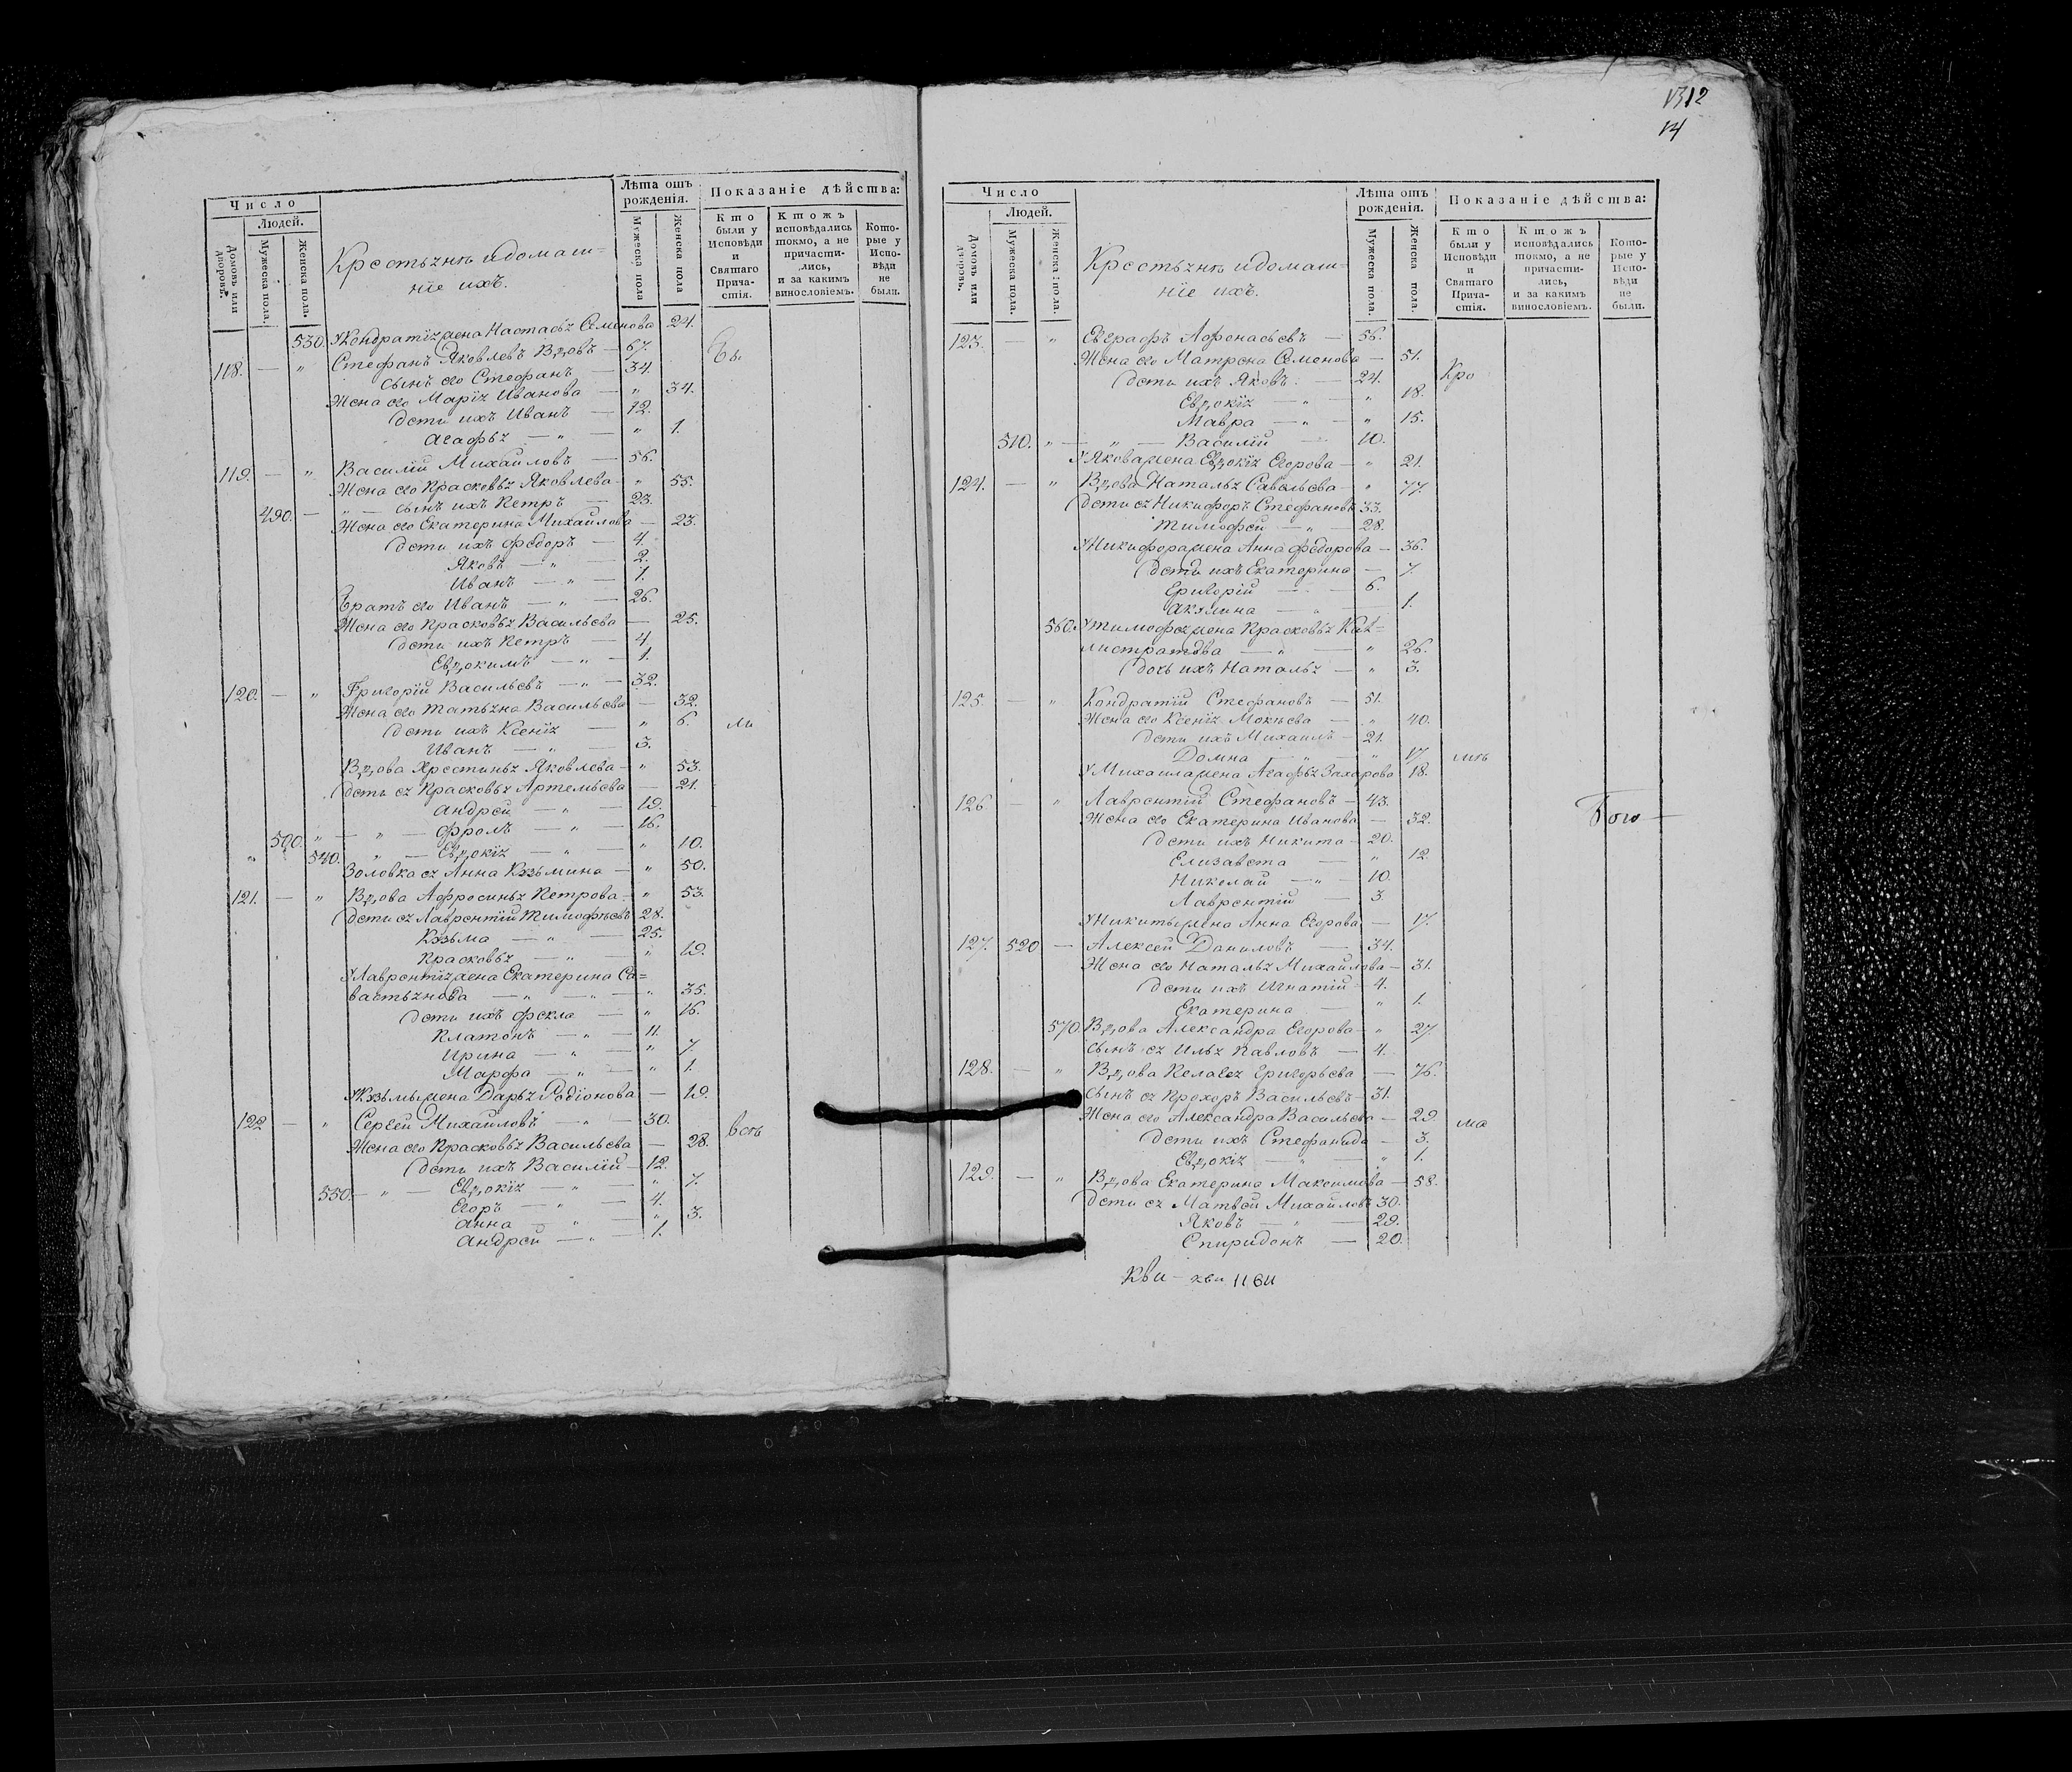 Число
Людей.
Домовъ или дворовъ.
Мужеска пола.
Женска пола.
Крестьянѣ и домаш=
ніе ихъ.
Лѣта отъ рожденія.
Мужеска пола
Женска пола
Показаніе дѣйства:
Кто были у Исповѣди и Святаго Прича-стія.
Ктожъ исповѣдались токмо, а не причасти-лись, и за какимъ винословіемъ.
Кото-рые у Испо-вѣди не были.
530. У Кондратія жена Настасья Семенова 24.
118. — „ Стефанъ Яковлевъ Вдовъ — 67. Бы
сынъ его Стефанъ — 34.
Жена его Марія Иванова — „ 34.
Дети ихъ Иванъ — 12.
Агафья — „ — „ 1.
119. — „ Василій Михайловъ — 56.
Жена его Прасковья Яковлева — „ 55.
490. — „ — сынъ ихъ Петръ — 23.
Жена его Екатерина Михайлова — 23.
Дети ихъ Федоръ — 4.
Яковъ — „ — 2.
Иванъ — „ — 1.
Братъ его Иванъ — „ — 26.
Жена его Прасковья Васильева — 25.
Дети ихъ Петръ — 4
Евдокимъ — „ — 1.
120. — „ Григорій Васильевъ — „ — 32.
Жена его Татьяна Васильева — 32.
Дети ихъ Ксенія — „ 6. ли
Иванъ — „ — 3.
Вдова Хрестинья Яковлева — „ 53.
Дети ея Прасковья Артемьева — 21.
Андрей — „ — 19.
500. „ — „ — Фролъ — „ — 16.
„ 540. „ — Евдокія — „ — „ 10.
Золовка ея Анна Кузьмина — „ 50.
121. — „ Вдова Афросинья Петрова — „ 53.
Дети ея Лаврентій Тимофѣевъ 28.
Кузьма — „ — 25.
Прасковья — „ — „ 19.
У Лаврентія жена Екатерина Са=
вастьянова — „ — „ — „ 35.
Дети ихъ Фекла — „ 16.
Платонъ — „ — 11.
Ирина — „ — „ 7.
Марфа — „ — „ 1.
У Кузьмы жена Дарья Родіонова — 19.
122 — „ Сергей Михайловъ — „ — 30.
Жена его Прасковья Васильева — 28. всѣ
Дети ихъ Василій — 12.
550. — „ — Евдокія — „ — „ 7.
Егоръ — „ — 4.
Анна — „ — „ 3.
Андрей — „ — 1.
1312
14
Число
Людей.
Домовъ или дворовъ.
Мужеска пола.
Женска пола.
Крестьянѣ и домаш=
ніе ихъ.
Лѣта отъ рожденія.
Мужеска пола.
Женска пола.
Показаніе дѣйства:
Кто были у Исповѣди и Святаго Прича-стія.
Ктожъ исповѣдались токмо, а не причасти-лись, и за какимъ винословіемъ.
Кото-рые у Испо-вѣди не были.
123. — „ Евграфъ Афонасьевъ — 56.
Жена его Матрена Семенова — 51.
Дети ихъ Яковъ — 24. Кро
Евдокія — „ — „ 18.
Мавра — „ — „ 15.
510. „ — „ — Василій — 10.
У Якова жена Евдокія Егорова — „ 21.
124. — „ Вдова Наталья Савельева — „ 77.
Дети ея Никифоръ Стефановъ 33.
Тимофей — „ — 28.
У Никифора жена Анна Федорова — 36.
Дети ихъ Екатерина — 7.
Григорій — 6.
Акулина — „ — 1.
560. У Тимофея жена Прасковья Кал=
листратова — „ — „ 26.
Дочь ихъ Наталья — „ 3.
125. — „ Кондратій Стефановъ — 51.
Жена его Ксенія Мокѣева — „ 40.
Дети ихъ Михаилъ — 21.
Домна — „ — „ 17 мѣ
У Михаила жена Агафья Захарова 18.
126 — „ Лаврентій Стефановъ — 43.
Жена его Екатерина Иванова — 32. Бого —
Дети ихъ Никита — 20.
Елизавета — „ 12.
Николай — „ — 10.
Лаврентій — 3.
У Никиты жена Анна Егорова — 17.
127. 520 — Алексей Даниловъ — 34.
Жена его Наталья Михайлова — 31.
Дети ихъ Игнатій — 4.
Екатерина — „ 1.
570. Вдова Александра Егорова — „ 27.
сынъ ея Илья Павловъ — 4.
128. — „ Вдова Пелагея Григорьева — 76.
сынъ ея Прохоръ Васильевъ — 31.
Жена его Александра Васильева — 29. ма
Дети ихъ Стефанида — 3.
Евдокія — „ — „ 1.
129. — „ Вдова Екатерина Максимова — 58.
Дети ея Матвей Михайловъ 30.
Яковъ — „ — 29.
Спиридонъ — 20.